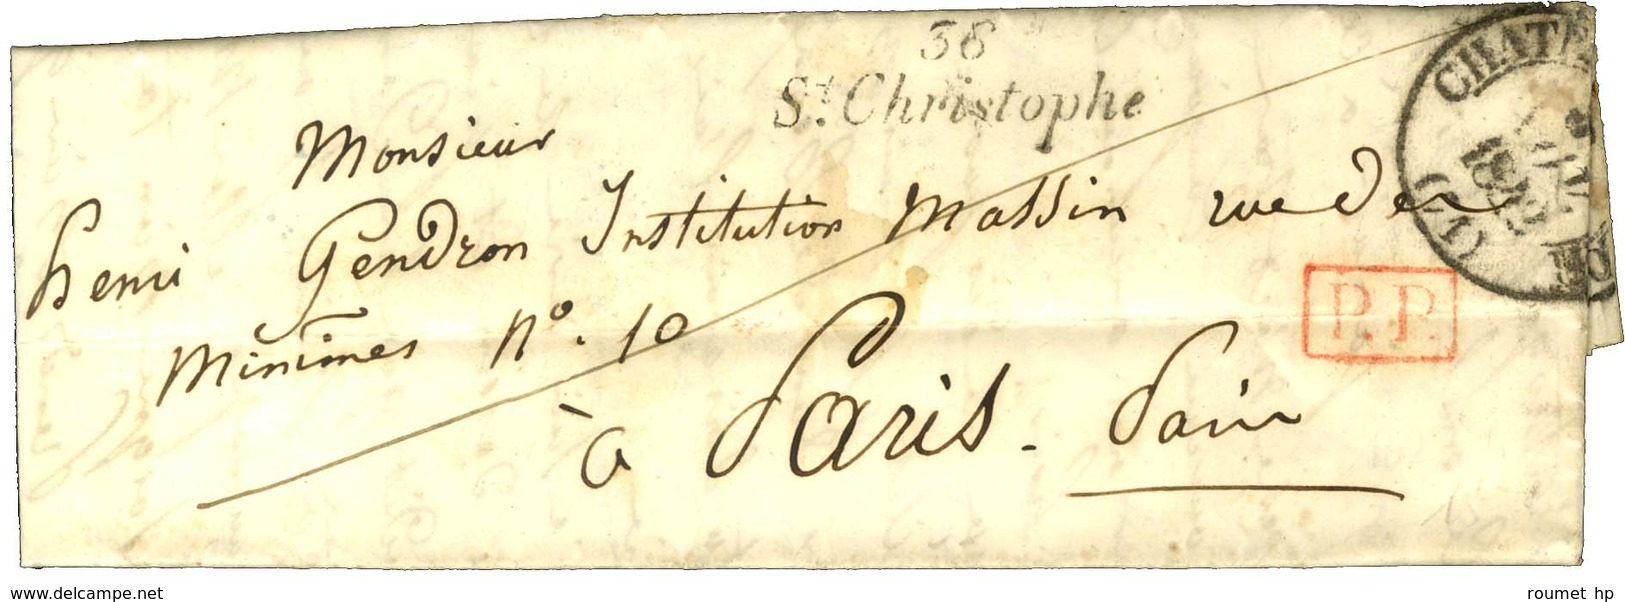 38
St. Christophe
CHATE
(21)
P.P.
Monsieur
henri Gendron Institution Massin rue des
Minimes No. 10
à Paris - Paris
www.delcampe.net
roumet hp